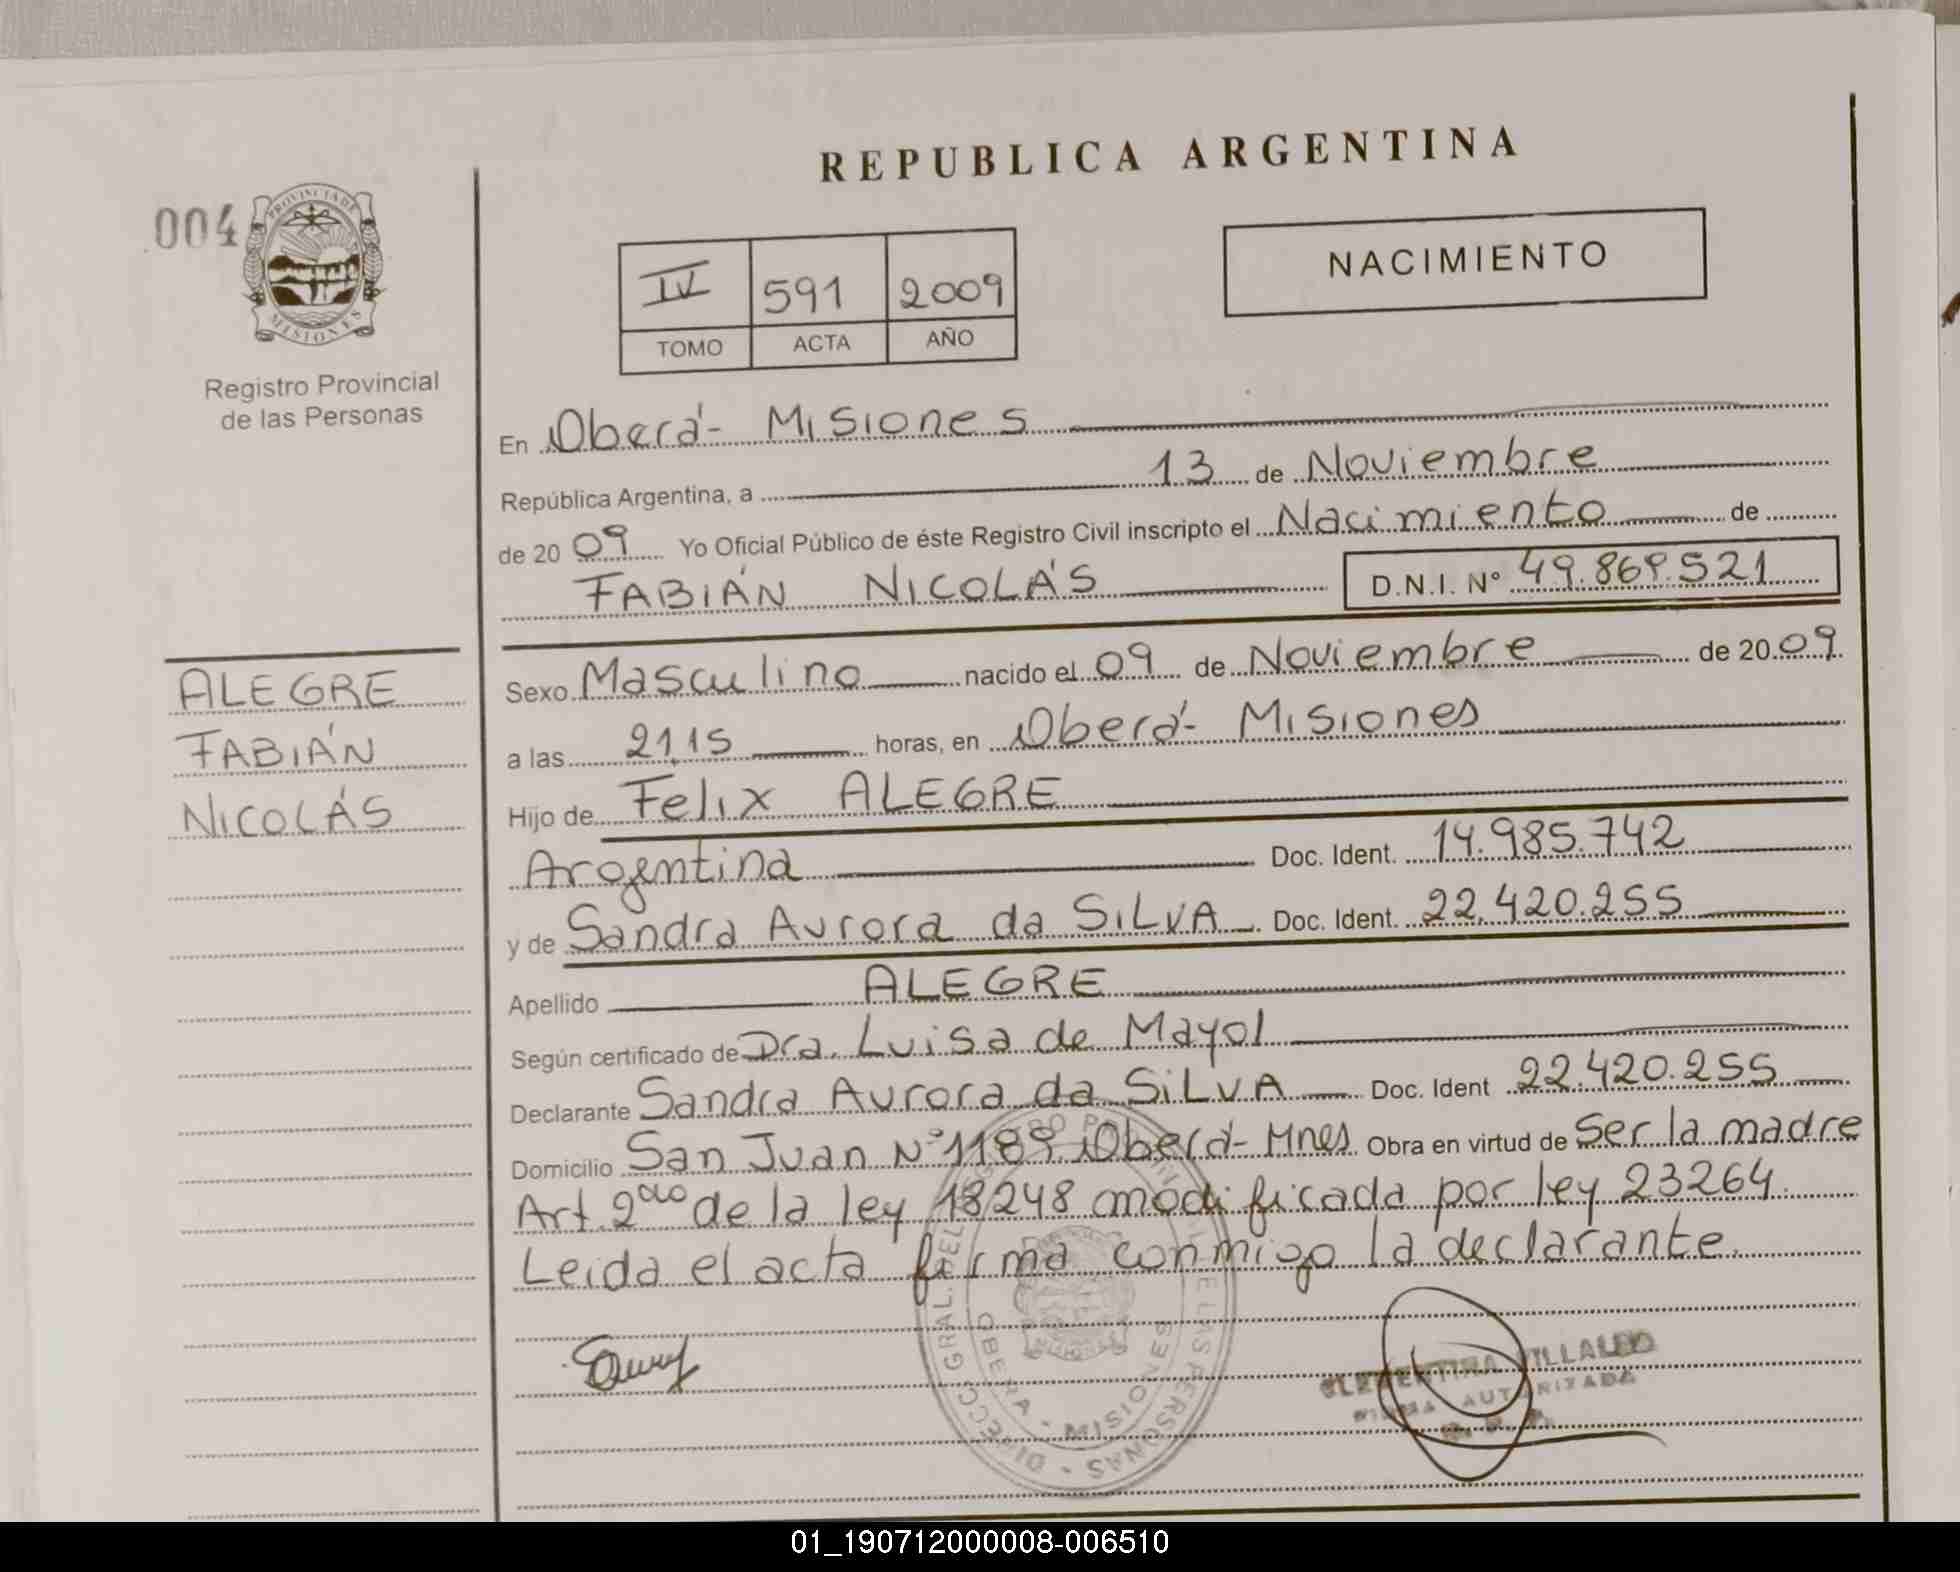 REPUBLICA ARGENTINA
004
PROVINCIA DE
MISIONES
Registro Provincial
de las Personas
NACIMIENTO
IV 591 2009
TOMO ACTA AÑO
En Oberá - Misiones
República Argentina, a 13 de Noviembre
de 20 09 Yo Oficial Público de éste Registro Civil inscripto el Nacimiento de
FABIÁN NICOLÁS D.N.I. Nº 49.869.521
ALEGRE
FABIÁN
NICOLÁS
Sexo Masculino nacido el 09 de Noviembre de 20 09
a las 21,15 horas, en Oberá - Misiones
Hijo de Felix ALEGRE
Argentina Doc. Ident. 14.985.742
y de Sandra Aurora da SILVA Doc. Ident. 22.420.255
Apellido ALEGRE
Según certificado de Dra. Luisa de Mayol
Declarante Sandra Aurora da SILVA Doc. Ident 22.420.255
Domicilio San Juan Nº 1189 Oberá - Mnes Obra en virtud de Ser la madre
Art. 2do de la ley 18248 modificada por ley 23264.
Leida el acta firma conmigo la declarante.
DIRECC. GRAL. DEL DE LAS PERSONAS
OBERA - MISIONES
CLEMENTINA VILLALBO
FIRMA AUTORIZADA
01_190712000008-006510